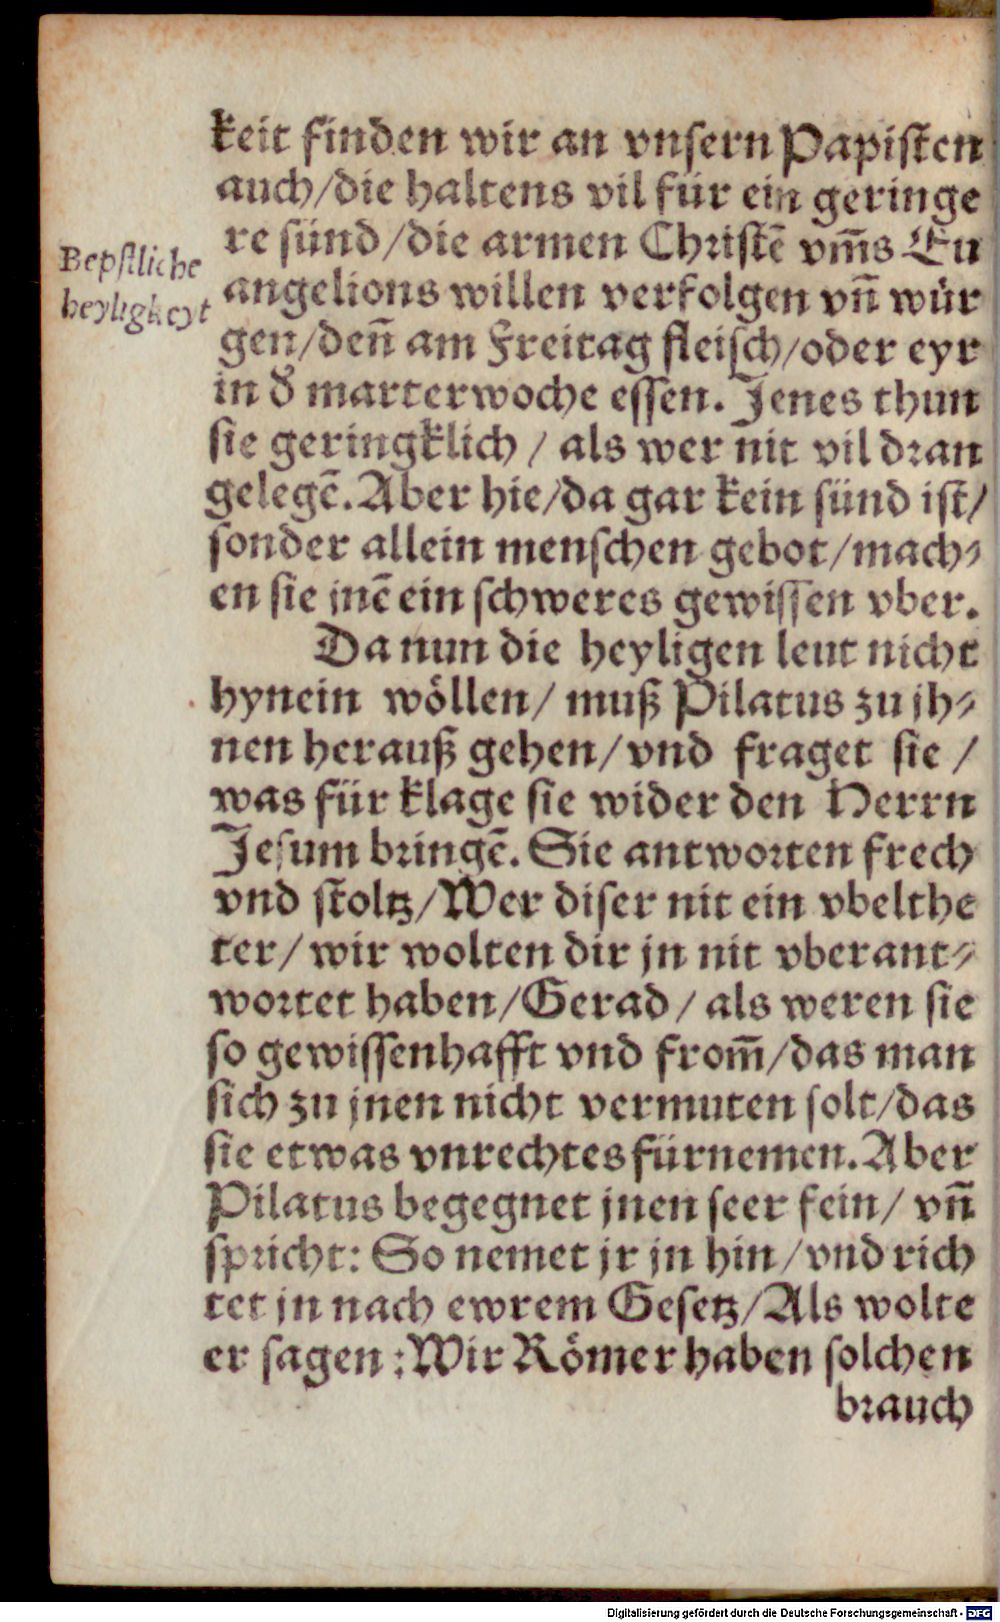 keit finden wir an vnsern Papisten
auch/die haltens vil für ein geringe
re sünd/die armen Christē vm̃s Eu
Bepstliche
heyligkeyt
angelions willen verfolgen vñ wür
gen/deñ am Freitag fleisch/oder eyr
in d̕ marterwoche essen. Jenes thun
sie geringklich / als wer nit vil dran
gelegē. Aber hie/da gar kein sünd ist/
sonder allein menschen gebot/mach-
en sie jnē ein schweres gewissen vber.
Da nun die heyligen leut nicht
hynein wöllen/ muß Pilatus zu jh-
nen herauß gehen/vnd fraget sie /
was für klage sie wider den Herrn
Jesum bringē. Sie antworten frech
vnd stoltz/Wer diser nit ein vbelthe
ter/ wir wolten dir jn nit vberant-
wortet haben/Gerad/ als weren sie
so gewissenhafft vnd from̃/das man
sich zu jnen nicht vermuten solt/das
sie etwas vnrechtes fürnemen. Aber
Pilatus begegnet jnen seer fein/ vñ
spricht: So nemet jr jn hin/vnd rich
tet jn nach ewrem Gesetz/Als wolte
er sagen: Wir Römer haben solchen
brauch
Digitalisierung gefördert durch die Deutsche Forschungsgemeinschaft - DFG